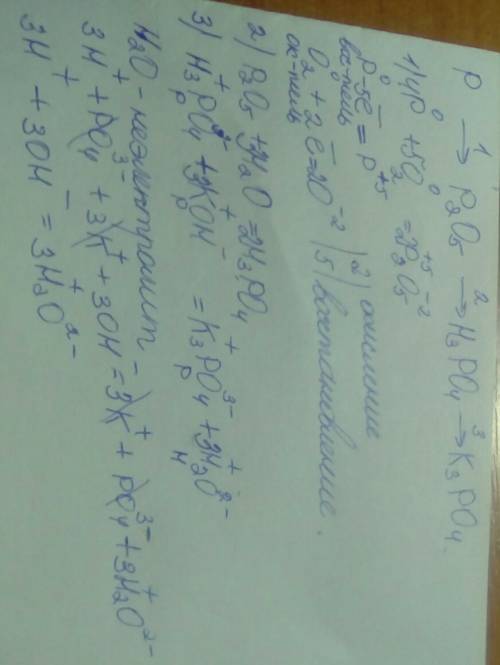 P →¹ P₂O₅ →² H₃PO₄ →³ K₃PO₄.
1) 4P⁰ + 5O₂⁰ = 2P₂⁺⁵O₅⁻²
P⁰ - 5e̅ = P⁺⁵ |2| окисление
вос-тель
O₂⁰ + 2e̅ = 2O⁻² |5| восстановление.
ок-тель
2) P₂O₅ + 3H₂O = 2H₃PO₄
3) H₃⁺PO₄³⁻ + 3K⁺OH⁻ = K₃⁺PO₄³⁻ + 3H₂⁺O²⁻
р р н
H₂O - неэлектролит -
3H⁺ + PO₄³⁻ + 3K⁺ + 3OH⁻ = 3K⁺ + PO₄³⁻ + 3H₂⁺O²⁻
3H⁺ + 3OH⁻ = 3H₂⁺O²⁻